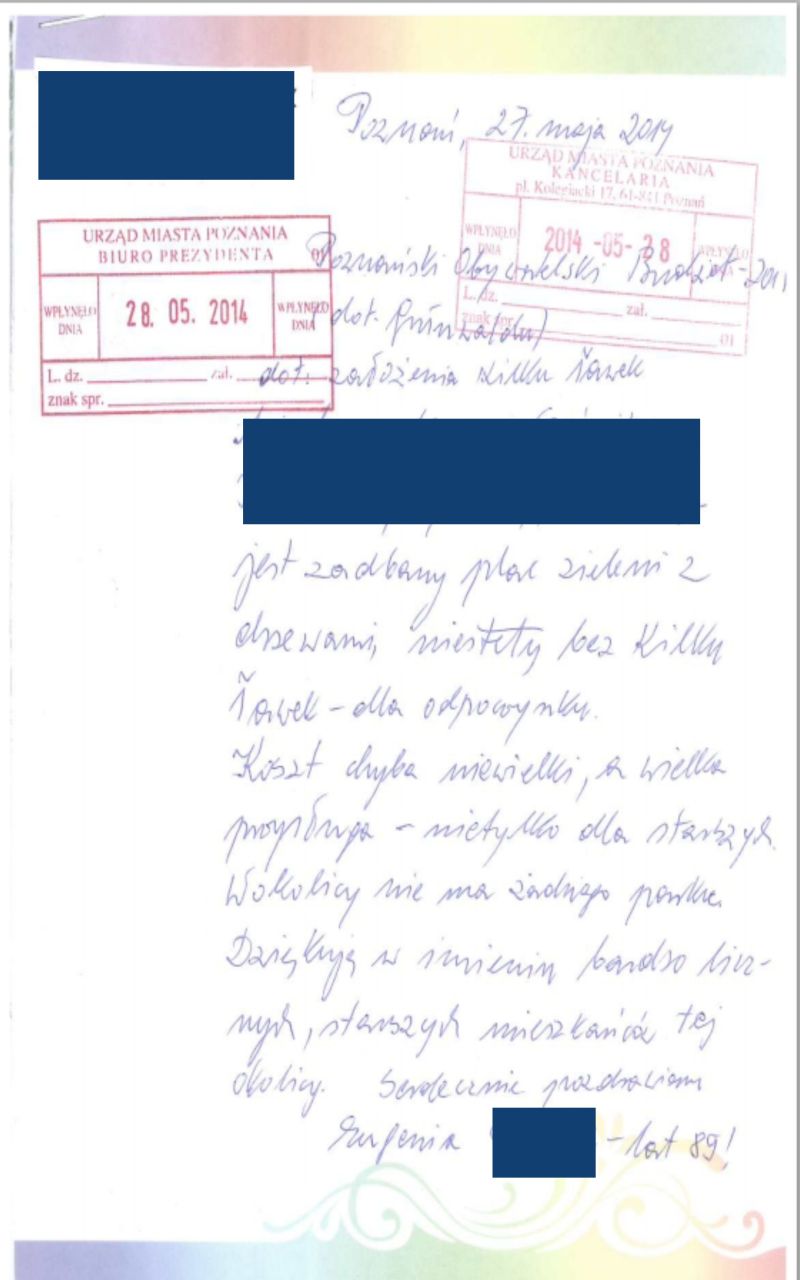 Poznań, 27. maja 2014
URZĄD MIASTA POZNANIA
KANCELARIA
pl. Kolegiacki 17, 61-841 Poznań
WPŁYNĘŁO DNIA
2014 -05- 28
WPŁYNĘŁO DNIA
L. dz. zał.
znak spr.
01
URZĄD MIASTA POZNANIA
BIURO PREZYDENTA
01
WPŁYNĘŁO DNIA
28. 05. 2014
WPŁYNĘŁO DNIA
L. dz. zał.
znak spr.
Poznański Obywatelski Budżet - 201
dot. Grunwaldu)
dot. założenia kilku ławek
jest zadbany plac zieleni z
drzewami, niestety bez kilku
ławek - dla odpoczynku.
Koszt chyba niewielki, a wielka
przysługa - nietylko dla starszych.
W okolicy nie ma żadnego parku.
Dziękuję w imieniu bardzo licz-
nych, starszych mieszkańców tej
okolicy. Serdecznie pozdrawiam
Eugenia - lat 89!